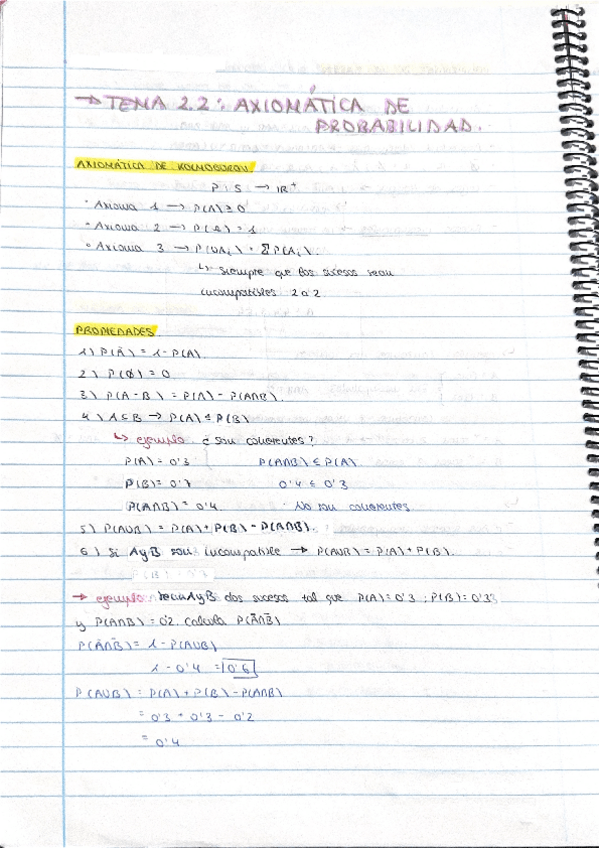 → TEMA 2.2: AXIOMÁTICA DE
PROBABILIDAD.
AXIOMÁTICA DE KOLMOGOROV
P: S → IR⁺
• Axioma 1 → P(A) ≥ 0
• Axioma 2 → P(Ω) = 1
• Axioma 3 → P(UAᵢ) = ΣP(Aᵢ).
↳ siempre que los sucesos sean
incompatibles 2 a 2
PROPIEDADES
1) P(Ā) = 1 - P(A).
2) P(Ø) = 0
3) P(A - B) = P(A) - P(A∩B).
4) A ⊆ B → P(A) ≤ P(B)
↳ ejemplo ¿ son coherentes?
P(A) = 0'3 P(A∩B) ≤ P(A)
P(B) = 0'7 0'4 ≤ 0'3
P(A∩B) = 0'4. No son coherentes
5) P(A∪B) = P(A) + P(B) - P(A∩B).
6) Si A y B son incompatible → P(A∪B) = P(A) + P(B).
→ ejemplo sean A y B dos sucesos tal que P(A) = 0'3 ; P(B) = 0'3
y P(A∩B) = 0'2. calcula P(Ā∩B̄)
P(Ā∩B̄) = 1 - P(A∪B)
1 - 0'4 = 0'6
P(A∪B) = P(A) + P(B) - P(A∩B)
= 0'3 + 0'3 - 0'2
= 0'4